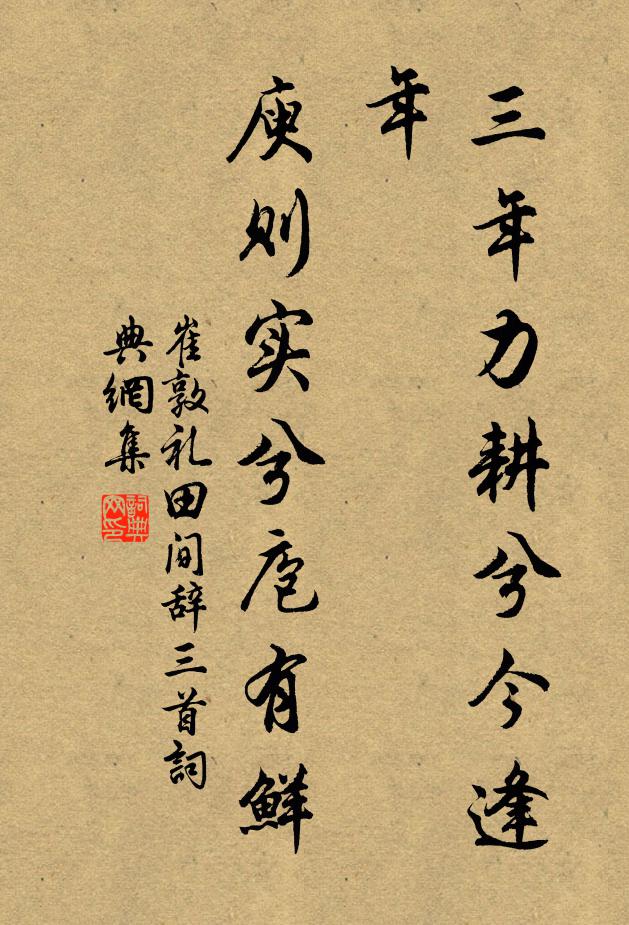 三年力耕兮今逢
年
庾则实兮庖有鮮
崔敦礼田间辞三首詞
典網集
詞典
网印